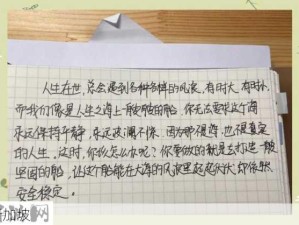 人生在世，总会遇到各种各样的风浪，有时大，有时小，
而我们像是人生之海上一艘艘的船，你无法要求这个海
永远保持平静，永远波澜不惊，因为那很难，也很真实
的人生。这时，你会怎么办呢？你要做的就是去打造一艘
坚固的船，让这个船能在大海的风浪里起起伏伏，却依然
安全稳定。
加坡